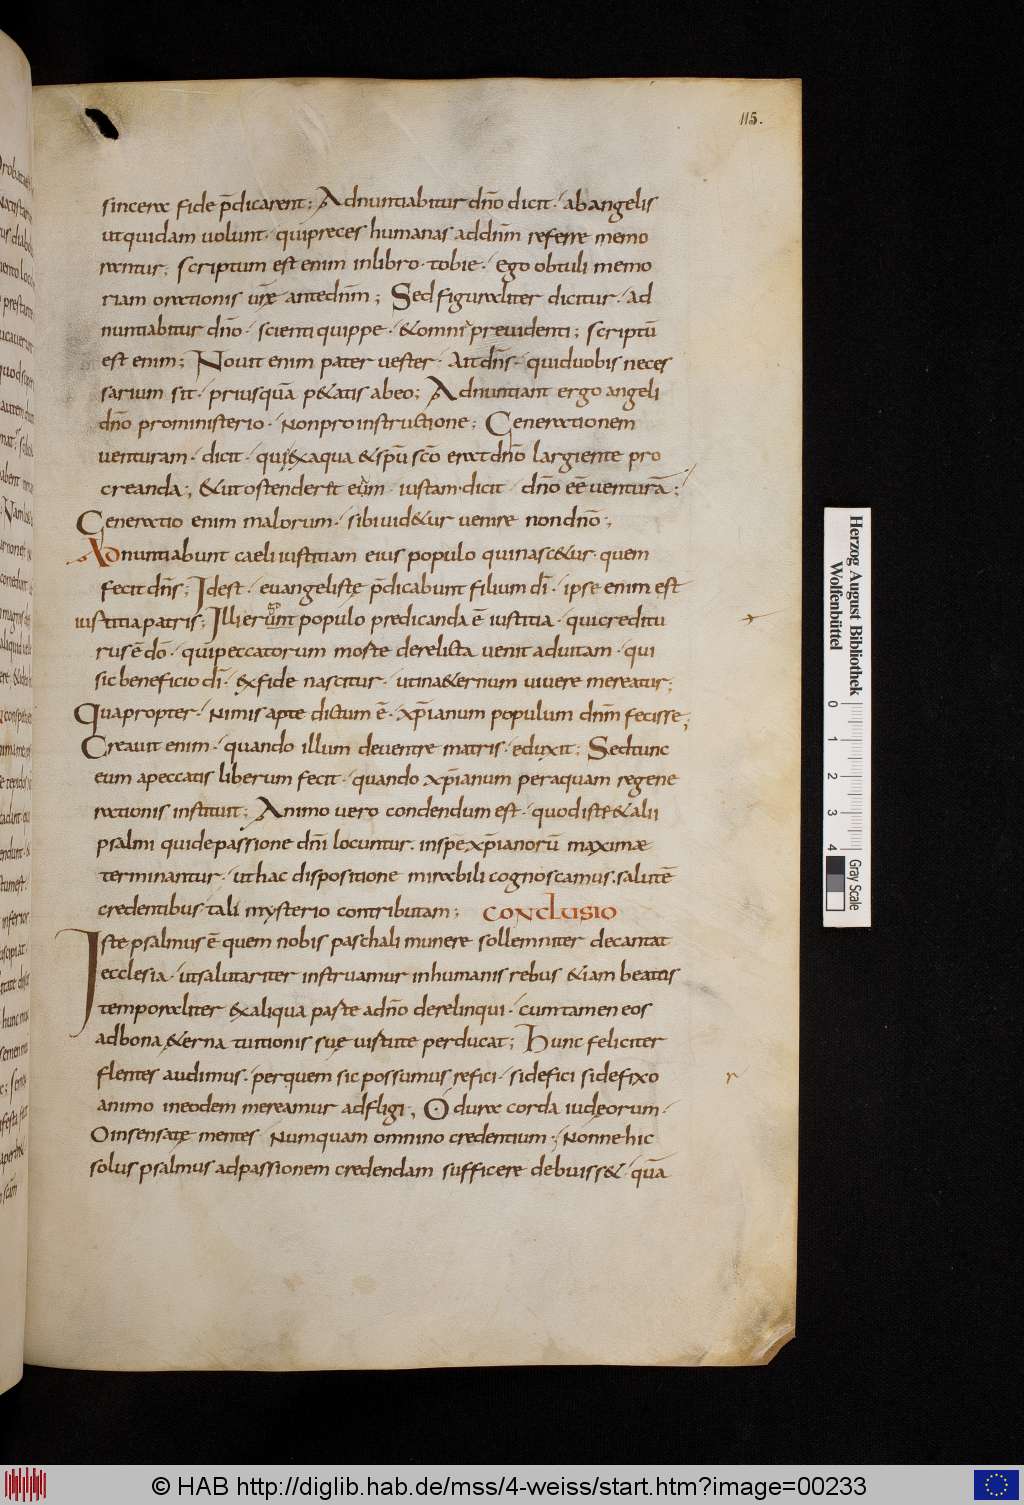 115.
sincera fide p̄dicarent; Adnuntiabitur dn̄o dicit· ab angelis
ut quidam uolunt· qui preces humanas ad dn̄m referre memo
rantur; scriptum est enim in libro· tobie· ego obtuli memo
riam orationis ur̄e ante dn̄m; Sed figuraliter dicitur· ad
nuntiabitur dn̄o· scienti quippe· & omni preuidenti; scriptū
est enim; Nouit enim pater uester· Ait dn̄s· quid uobis neces
sarium sit· priusquā p&atis ab eo; Adnuntiant ergo angeli
dn̄o pro ministerio· non pro instructione; Generationem
uenturam· dicit· quę ex aqua & sp̄u sc̄o erat dn̄o largiente pro
creanda; & ut ostenderet eum· iustam· dicit· dn̄o eē uenturā;
Generatio enim malorum· sibi uid&ur uenire non dn̄o;
Adnuntiabunt caeli iustitiam eius populo qui nasc&ur· quem
fecit dn̄s; Idest· euangelistę p̄dicabunt filium dī· ipse enim est
iustitia patris; Illi erunt populo predicanda ē iustitia· qui creditu
rus ē dō· qui peccatorum morte derelicta uenit ad uitam· qui
sic beneficio dī· ex fide nascitur· ut in a&ernum uiuere mereatur;
Quapropter· Nimis apte dictum ē· xp̄ianum populum dn̄m fecisse;
Creauit enim· quando illum de uentre matris· eduxit; Sed tunc
eum a peccatis liberum fecit· quando xp̄ianum per aquam regene
rationis instituit; Animo uero condendum est· quod iste & alii
psalmi qui de passione dn̄i locuntur· in spē xp̄ianorū maximæ
terminantur· ut hac dispositione mirabili cognoscamus· salutē
credentibus tali mysterio contributam; CONCLUSIO
Iste psalmus ē quem nobis paschali munere sollemniter decantat
ecclesia· ut salutariter instruamur in humanis rebus & iam beatos
temporaliter ex aliqua parte ad dn̄o derelinqui· cum tamen eos
ad bona &erna tuitionis suę uirtute perducat; Hunc feliciter
flentes audimus· per quem sic possumus refici· si defici si defixo
animo in eodem mereamur adfligi; O dura corda iudeorum·
O insensatę mentes Numquam omnino credentium; Nonne hic
solus psalmus ad passionem credendam sufficere debuiss&· quā
Herzog August Bibliothek
Wolfenbüttel
0 1 2 3 4
Gray Scale
© HAB http://diglib.hab.de/mss/4-weiss/start.htm?image=00233